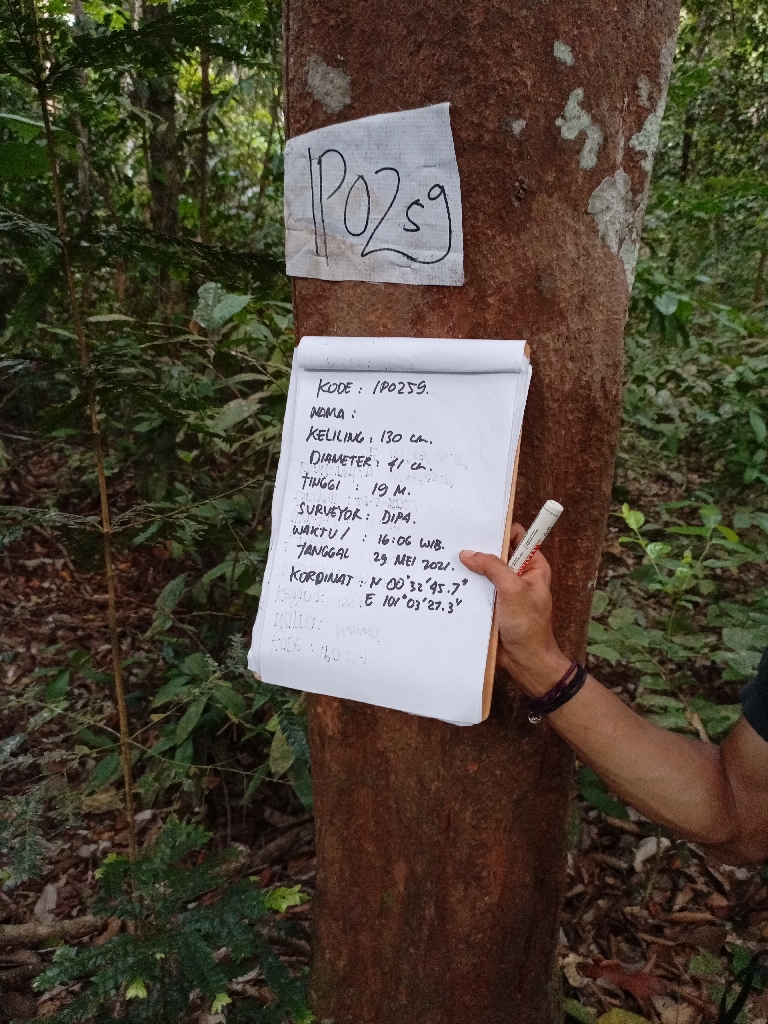 IP0259
KODE : IP0259.
NAMA :
KELILING : 130 cm.
DIAMETER : 41 cm.
TINGGI : 19 M.
SURVEYOR : DIPA.
WAKTU / : 16:06 WIB.
TANGGAL 29 MEI 2021.
KORDINAT : N 00°32'45.7"
E 101°03'27.3"